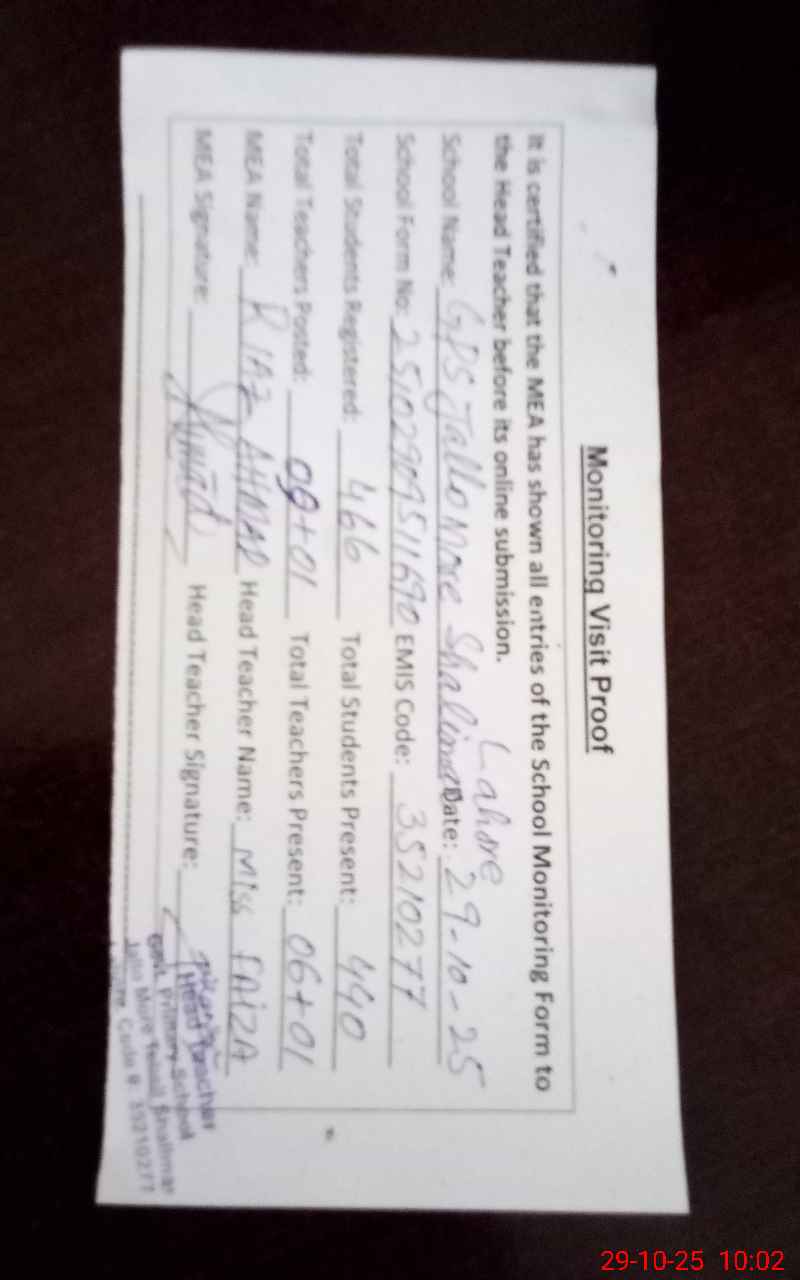 Monitoring Visit Proof
It is certified that the MEA has shown all entries of the School Monitoring Form to
the Head Teacher before its online submission.
Lahore
School Name: GPS Jallo More Shalimar Date: 29-10-25
School Form No: EMIS Code: 35210277
Total Students Registered: 466 Total Students Present: 440
Total Teachers Posted: +01 Total Teachers Present: 06+01
MEA Name: RIAZ AHMAD Head Teacher Name: Miss FAIZA
MEA Signature: Head Teacher Signature:
Head Teacher
Govt. Primary School
Jallo More Tehsil Shalimar
Code # 35210277
29-10-25 10:02